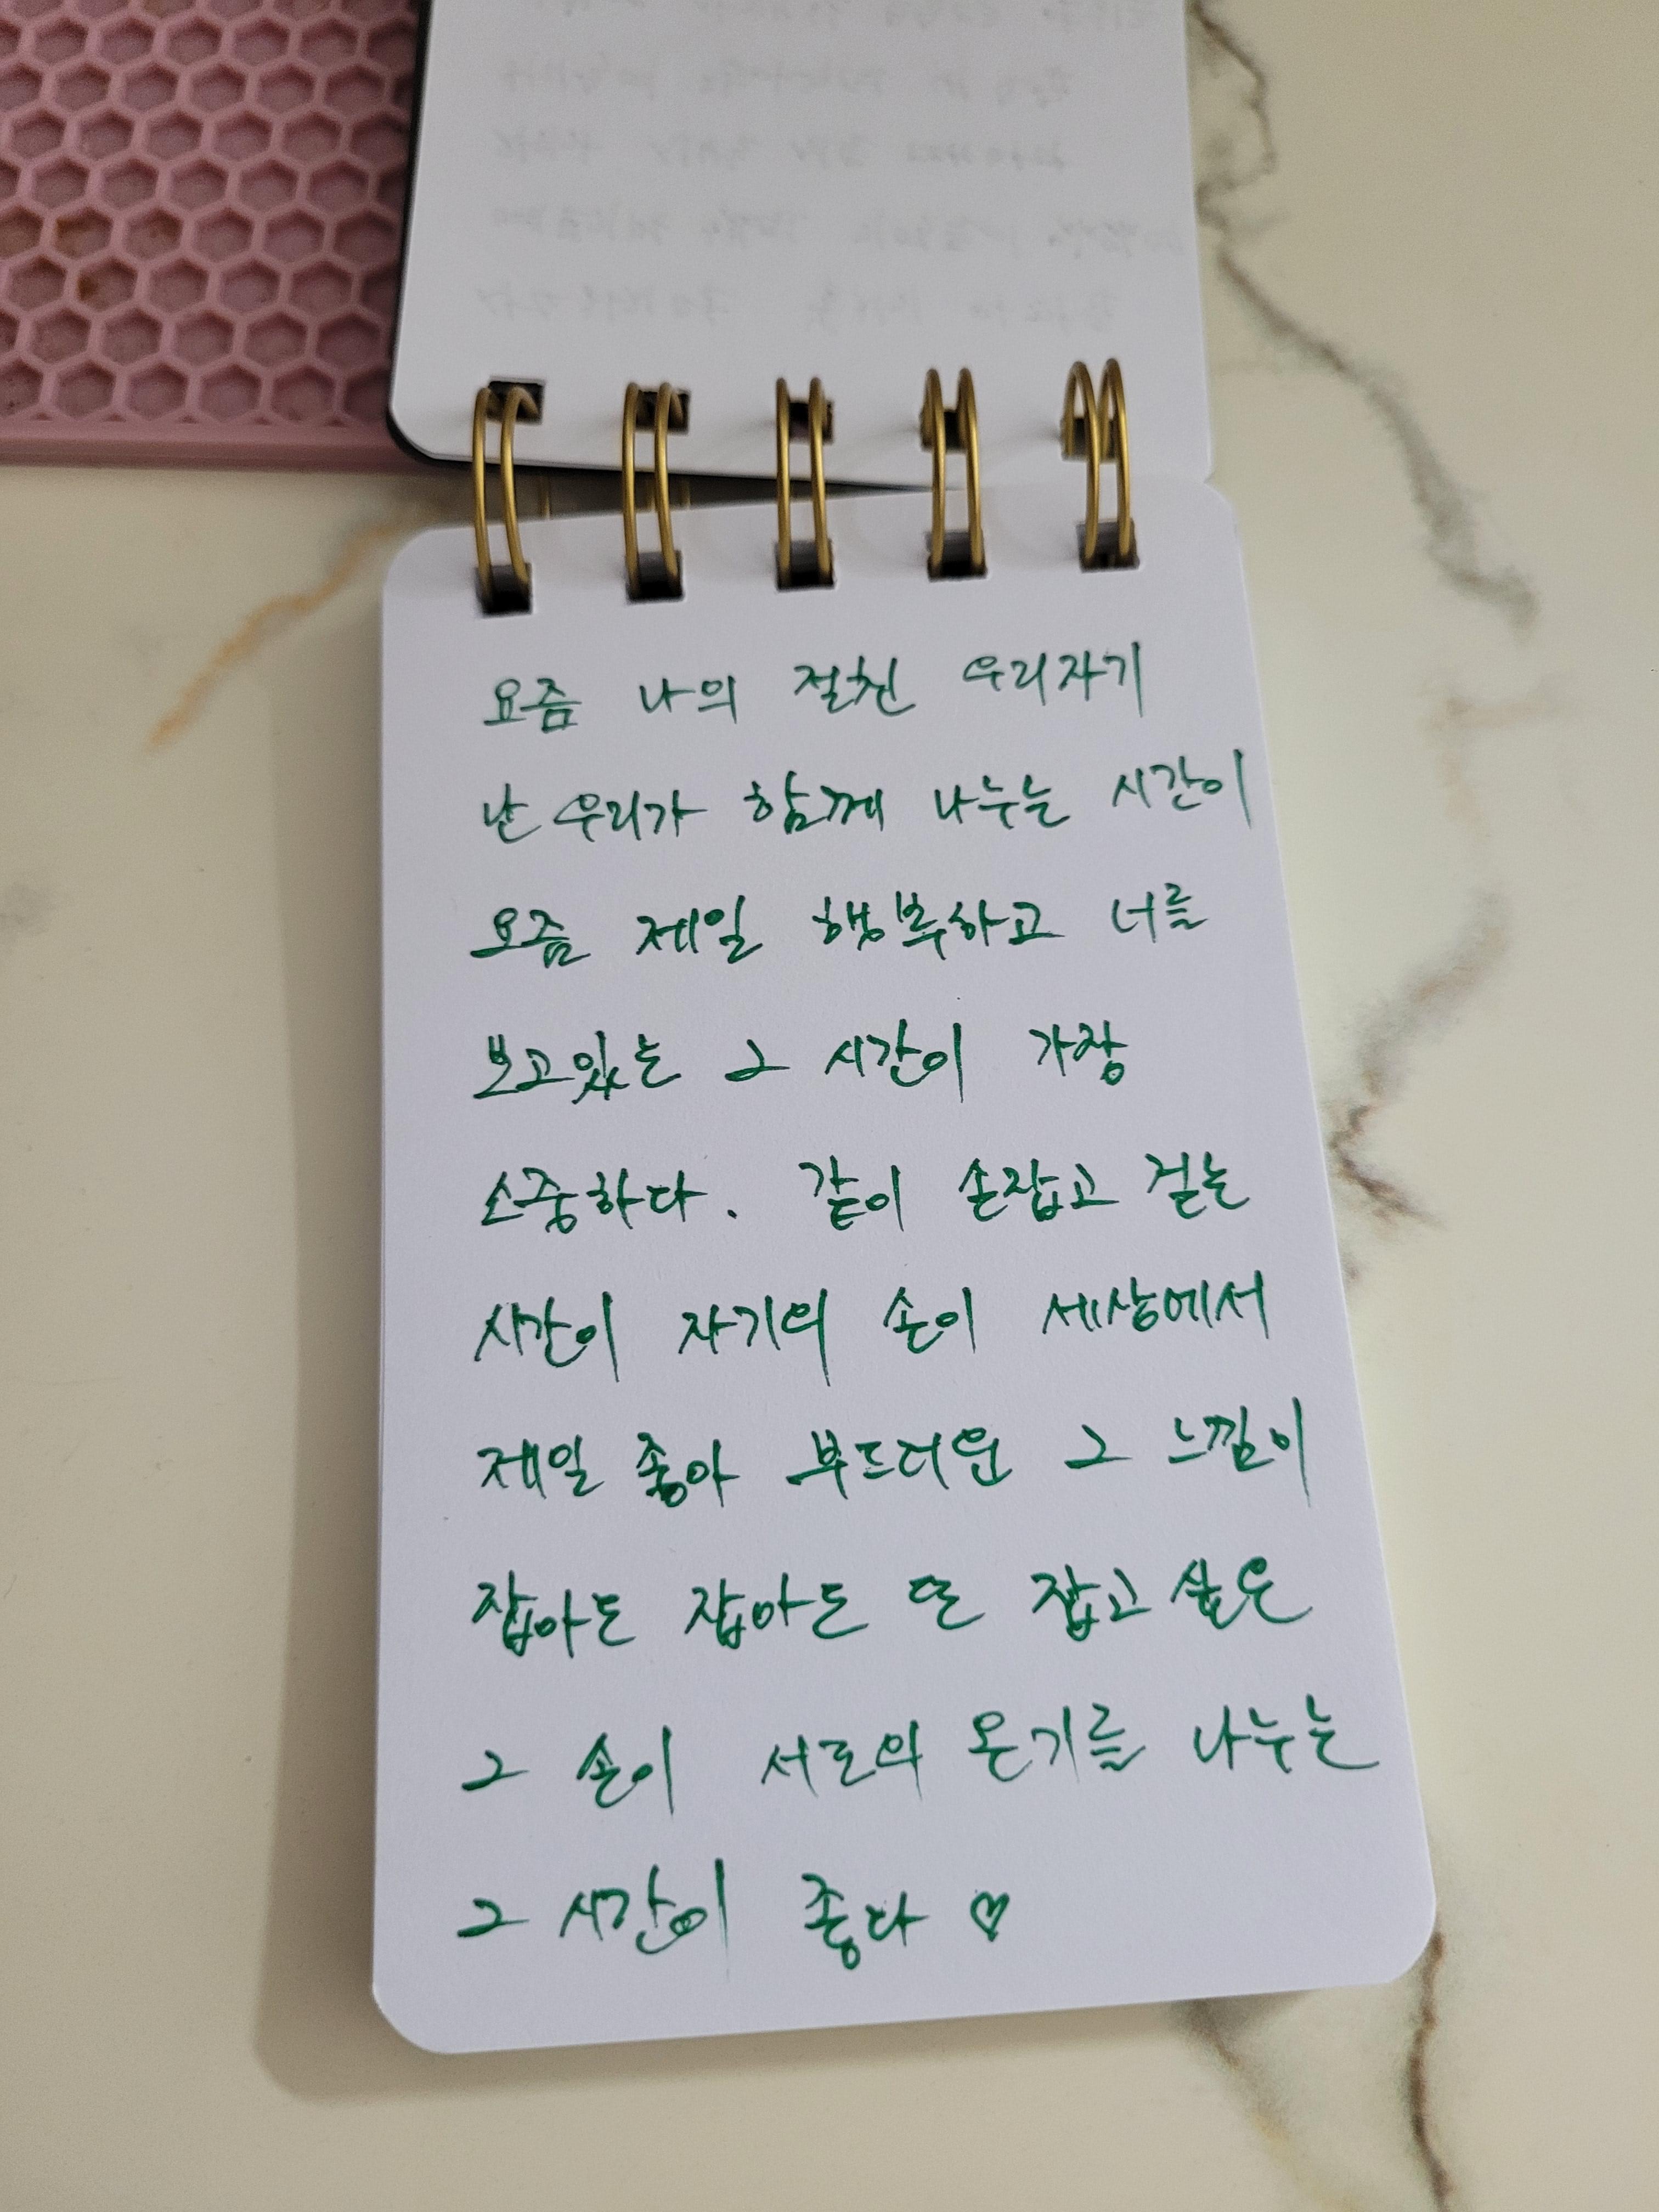 요즘 나의 절친 우리자기
난 우리가 함께 나누는 시간이
요즘 제일 행복하고 너를
보고있는 그 시간이 가장
소중하다. 같이 손잡고 걷는
시간이 자기의 손이 세상에서
제일 좋아 부드러운 그 느낌이
잡아도 잡아도 또 잡고싶은
그 손이 서로의 온기를 나누는
그 시간이 좋다 ♡